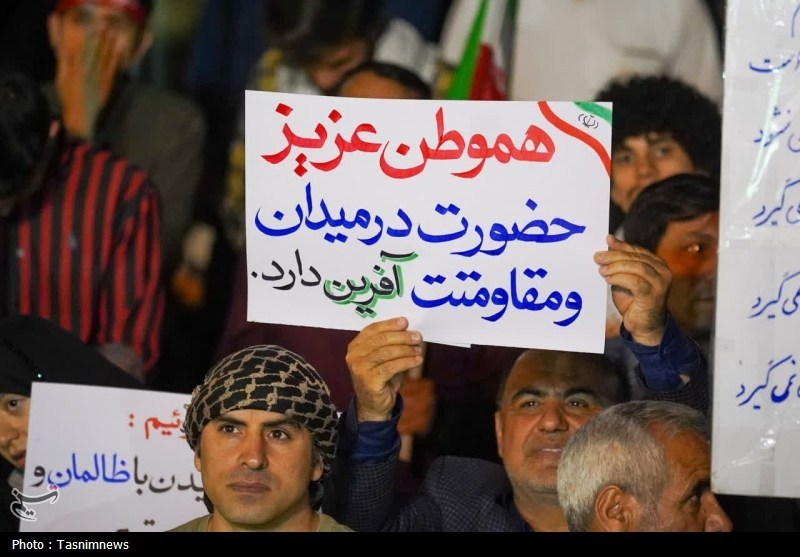 هموطن عزیز
حضورت در میدان
و مقاومتت آفرین دارد.
ئیم :
یدن با ظالمان و
است
نشود
گیرد
می گیرد
نمی گیرد
Photo : Tasnimnews